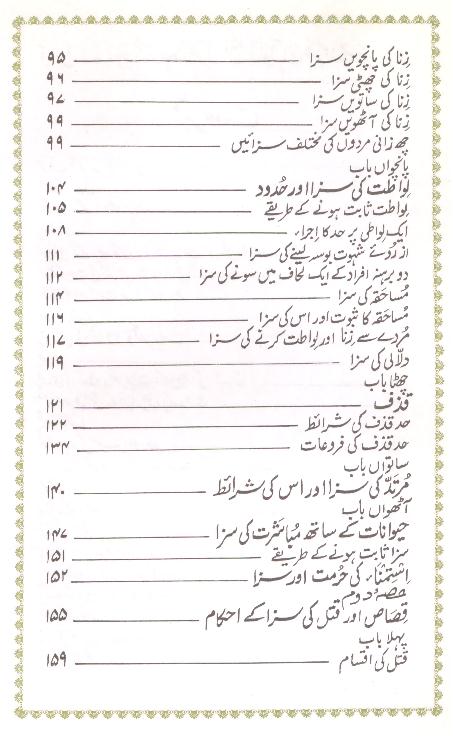 زنا کی پانچویں سزا ۹۵
زنا کی چھٹی سزا ۹۶
زنا کی ساتویں سزا ۹۷
زنا کی آٹھویں سزا ۹۹
چھ زانی مردوں کی مختلف سزائیں ۹۹
پانچواں باب
لِواطت کی سزا اور حُدود ۱۰۴
لِواطت ثابت ہونے کے طریقے ۱۰۵
ایک لِواطی پر حد کا اِجراء ۱۰۸
از رُوئے شہوت بوسہ لینے کی سزا ۱۱۱
دو برہنہ افراد کے ایک لحاف میں سونے کی سزا ۱۱۲
مُساحَقہ کی سزا ۱۱۴
مُساحَقہ کا ثبوت اور اس کی سزا ۱۱۶
مُردے سے زِنا اور لِواطت کرنے کی سزا ۱۱۷
دلّالی کی سزا ۱۱۹
چھٹا باب
قذف ۱۲۱
حد قذف کی شرائط ۱۲۲
حد قذف کی فروعات ۱۳۴
ساتواں باب
مُرتَدّ کی سزا اور اس کی شرائط ۱۴۰
آٹھواں باب
حیوانات کے ساتھ مُباشَرت کی سزا ۱۴۷
سزا ثابت ہونے کے طریقے ۱۵۱
اِسْتِمْنَاء کی حُرمت اور سزا ۱۵۲
حصہ دوم
قِصَاص اور قتل کی سزا کے احکام ۱۵۵
پہلا باب
قتل کی اقسام ۱۵۹